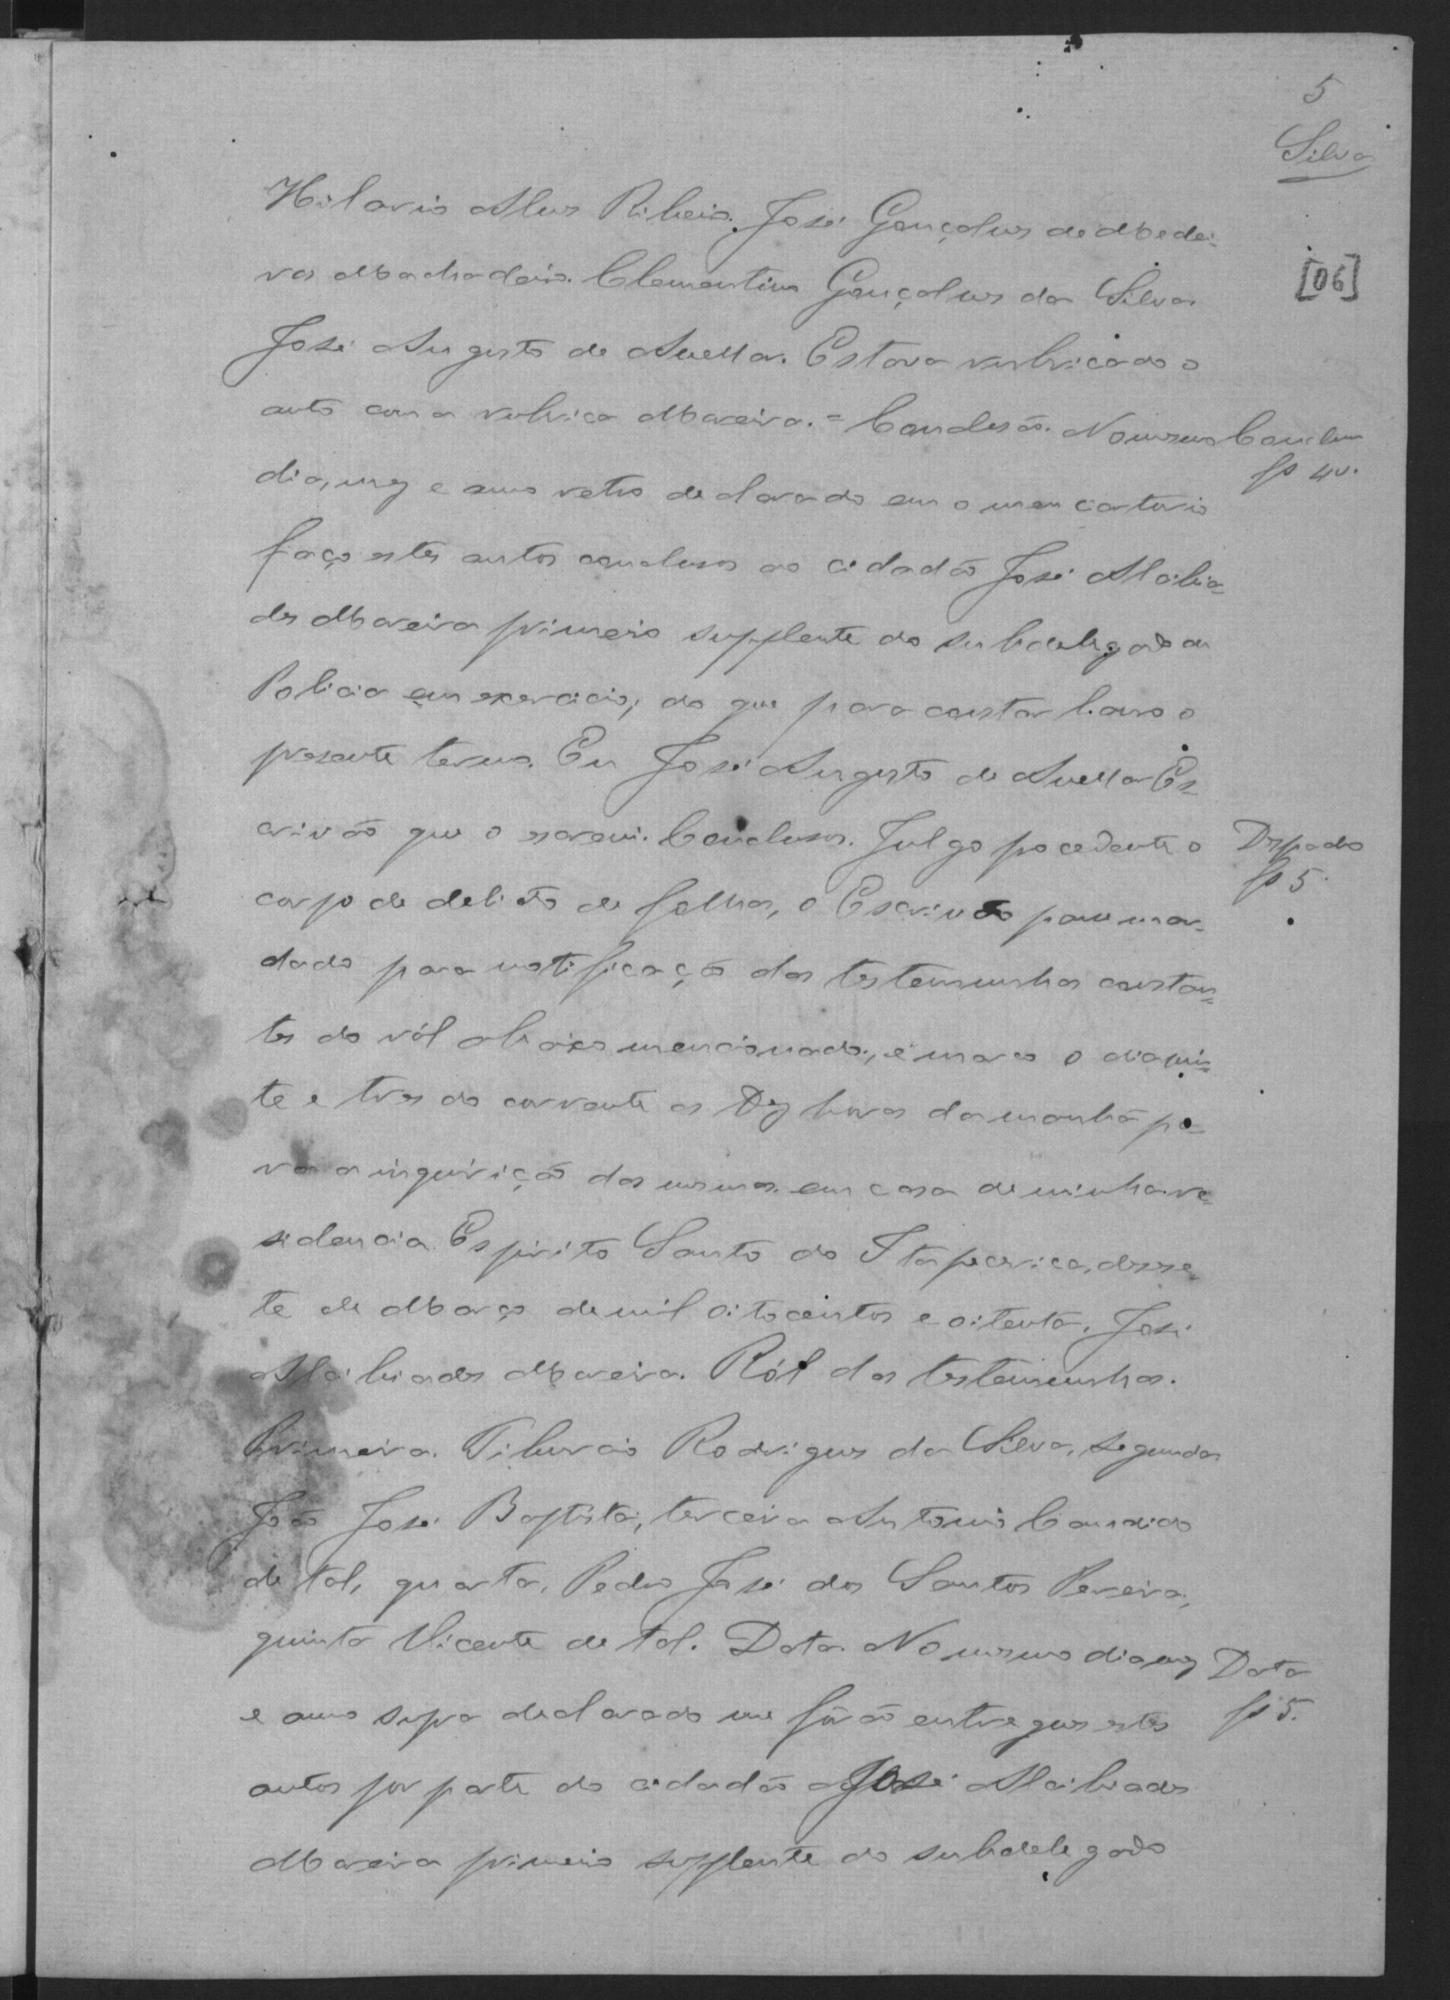 5
Silva
[06]
Hilario Alves Ribeiro. José Gonçalves de Medei-
ros Machadeiro. Clementino Gonçalves da Silva.
José Augusto de Avellar. Estava rubricado o
auto com a rubrica Moreira. = Conclusão. No mesmo
Conclem
fs 4v.
dia, mez e anno retro declarado em o meu cartorio
faço estes autos conclusos ao cidadão José Alcibia-
des Moreira primeiro supplente do subdelegado da
Policia em exercicio, do que para constar lavro o
presente termo. Eu José Augusto de Avellar Es-
crivão que o escrevi. Conclusos. Julgo procedente o
Despacho
fs 5.
corpo de delicto de folhas, o Escrivão passe man-
dado para notificação das testemunhas constan-
tes do ról abaixo mencionado, e marco o dia vin-
te e tres do corrente as Dez horas da manhã pa-
ra a inquirição das mesmas em casa de minha re-
sidencia. Espirito Santo do Itapecerica, desese-
te de Março de mil oitocentos e oitenta. José
Alcibiades Moreira. Ról das testemunhas.
Primeira. Tiburcio Rodrigues da Silva, segunda
João José Baptista, terceira Antonio Candido
de tal, quarta, Pedro José dos Santos Pereira,
quinta Vicente de tal. Data. No mesmo dia mez
Data
fs 5.
e anno supra declarado me fôrão entregues estes
autos por parte do cidadão José Alcibiades
Moreira primeiro supplente do subdelegado